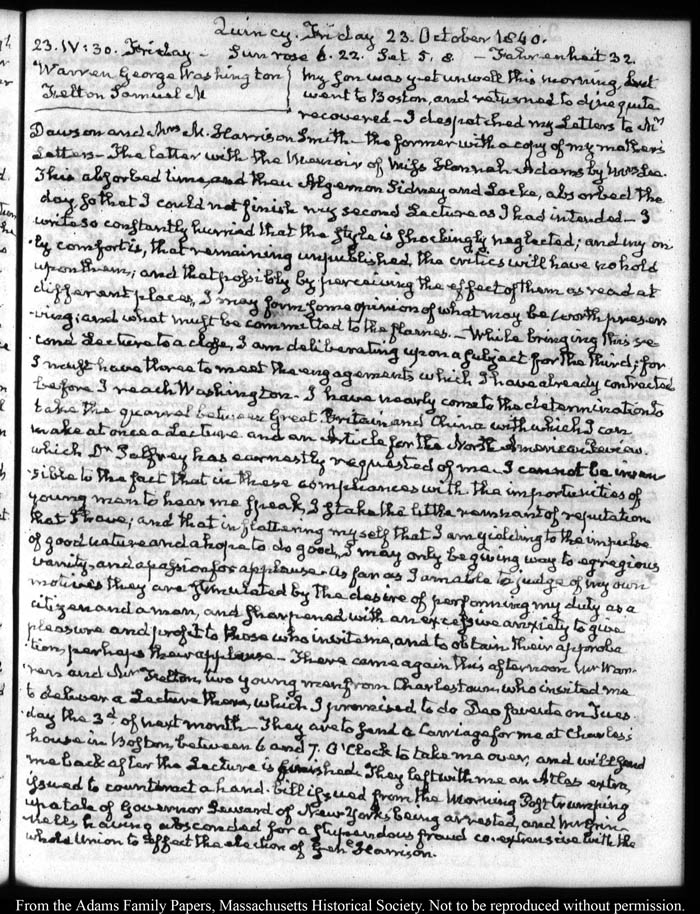 Quincy. Friday 23. October 1840.
23. IV:30. Friday. Sun rose 6. 22. Set 5. 8 — Fahrenheit 32.
Warren George Washington
Felton Samuel M
My Son was yet unwell this morning, but
went to Boston, and returned to dine quite
recovered — I despatched my Letters to Mr
Dawson and Mrs M. Harrison Smith — the former with a copy of my mother's
Letters — The latter with the Memoir of Miss Hannah Adams by Mrs Lee.
This absorbed time, and then Algernon Sidney and Locke, absorbed the
day, so that I could not finish my second Lecture as I had intended — I
write so constantly hurried that the style is shockingly neglected; and my on
ly comfort is, that remaining unpublished, the critics will have no hold
upon them; and that possibly by perceiving the effect of them as read at
different places, I may form some opinion of what may be worth preser
ving; and what must be committed to the flames. — While bringing this se
cond Lecture to a close, I am deliberating upon a subject for the third; for
I must have three to meet the engagements which I have already contracted
before I reach Washington. I have nearly come to the determination to
take the quarrel between Great Britain and China with which I can
make at once a Lecture and an Article for the North American Review.
which Dr Palfrey has earnestly requested of me. I cannot be insen
sible to the fact that in these compliances with the importunities of
young men to hear me speak, I stake the little remnant of reputation
that I have; and that in flattering myself that I am yielding to the impulse
of good nature and a hope to do good, I may only be giving way to egregious
vanity, and a passion for applause. As far as I am able to judge of my own
motives they are stimulated by the desire of performing my duty as a
citizen and a man, and sharpened with an excessive anxiety to give
pleasure and profit to those who invite me, and to obtain their approba
tion, perhaps their applause — There came again this afternoon Mr War
ren and Mr Felton, two young men from Charlestown, who invited me
to deliver a Lecture there, which I promised to do Deo favente on Tues
day the 3d of next month — They are to send a Carriage for me at Charles's
house in Boston, between 6 and 7. O'Clock to take me over, and will send
me back after the Lecture is finished. They left with me an Atlas extra,
issued to counteract a hand-bill issued from the Morning Post trumping
up a tale of Governor Seward of New York's being arrested, and Mr Grin
nell's having absconded for a stupendous fraud co-extensive with the
whole Union to effect the election of Genl Harrison.
From the Adams Family Papers, Massachusetts Historical Society. Not to be reproduced without permission.